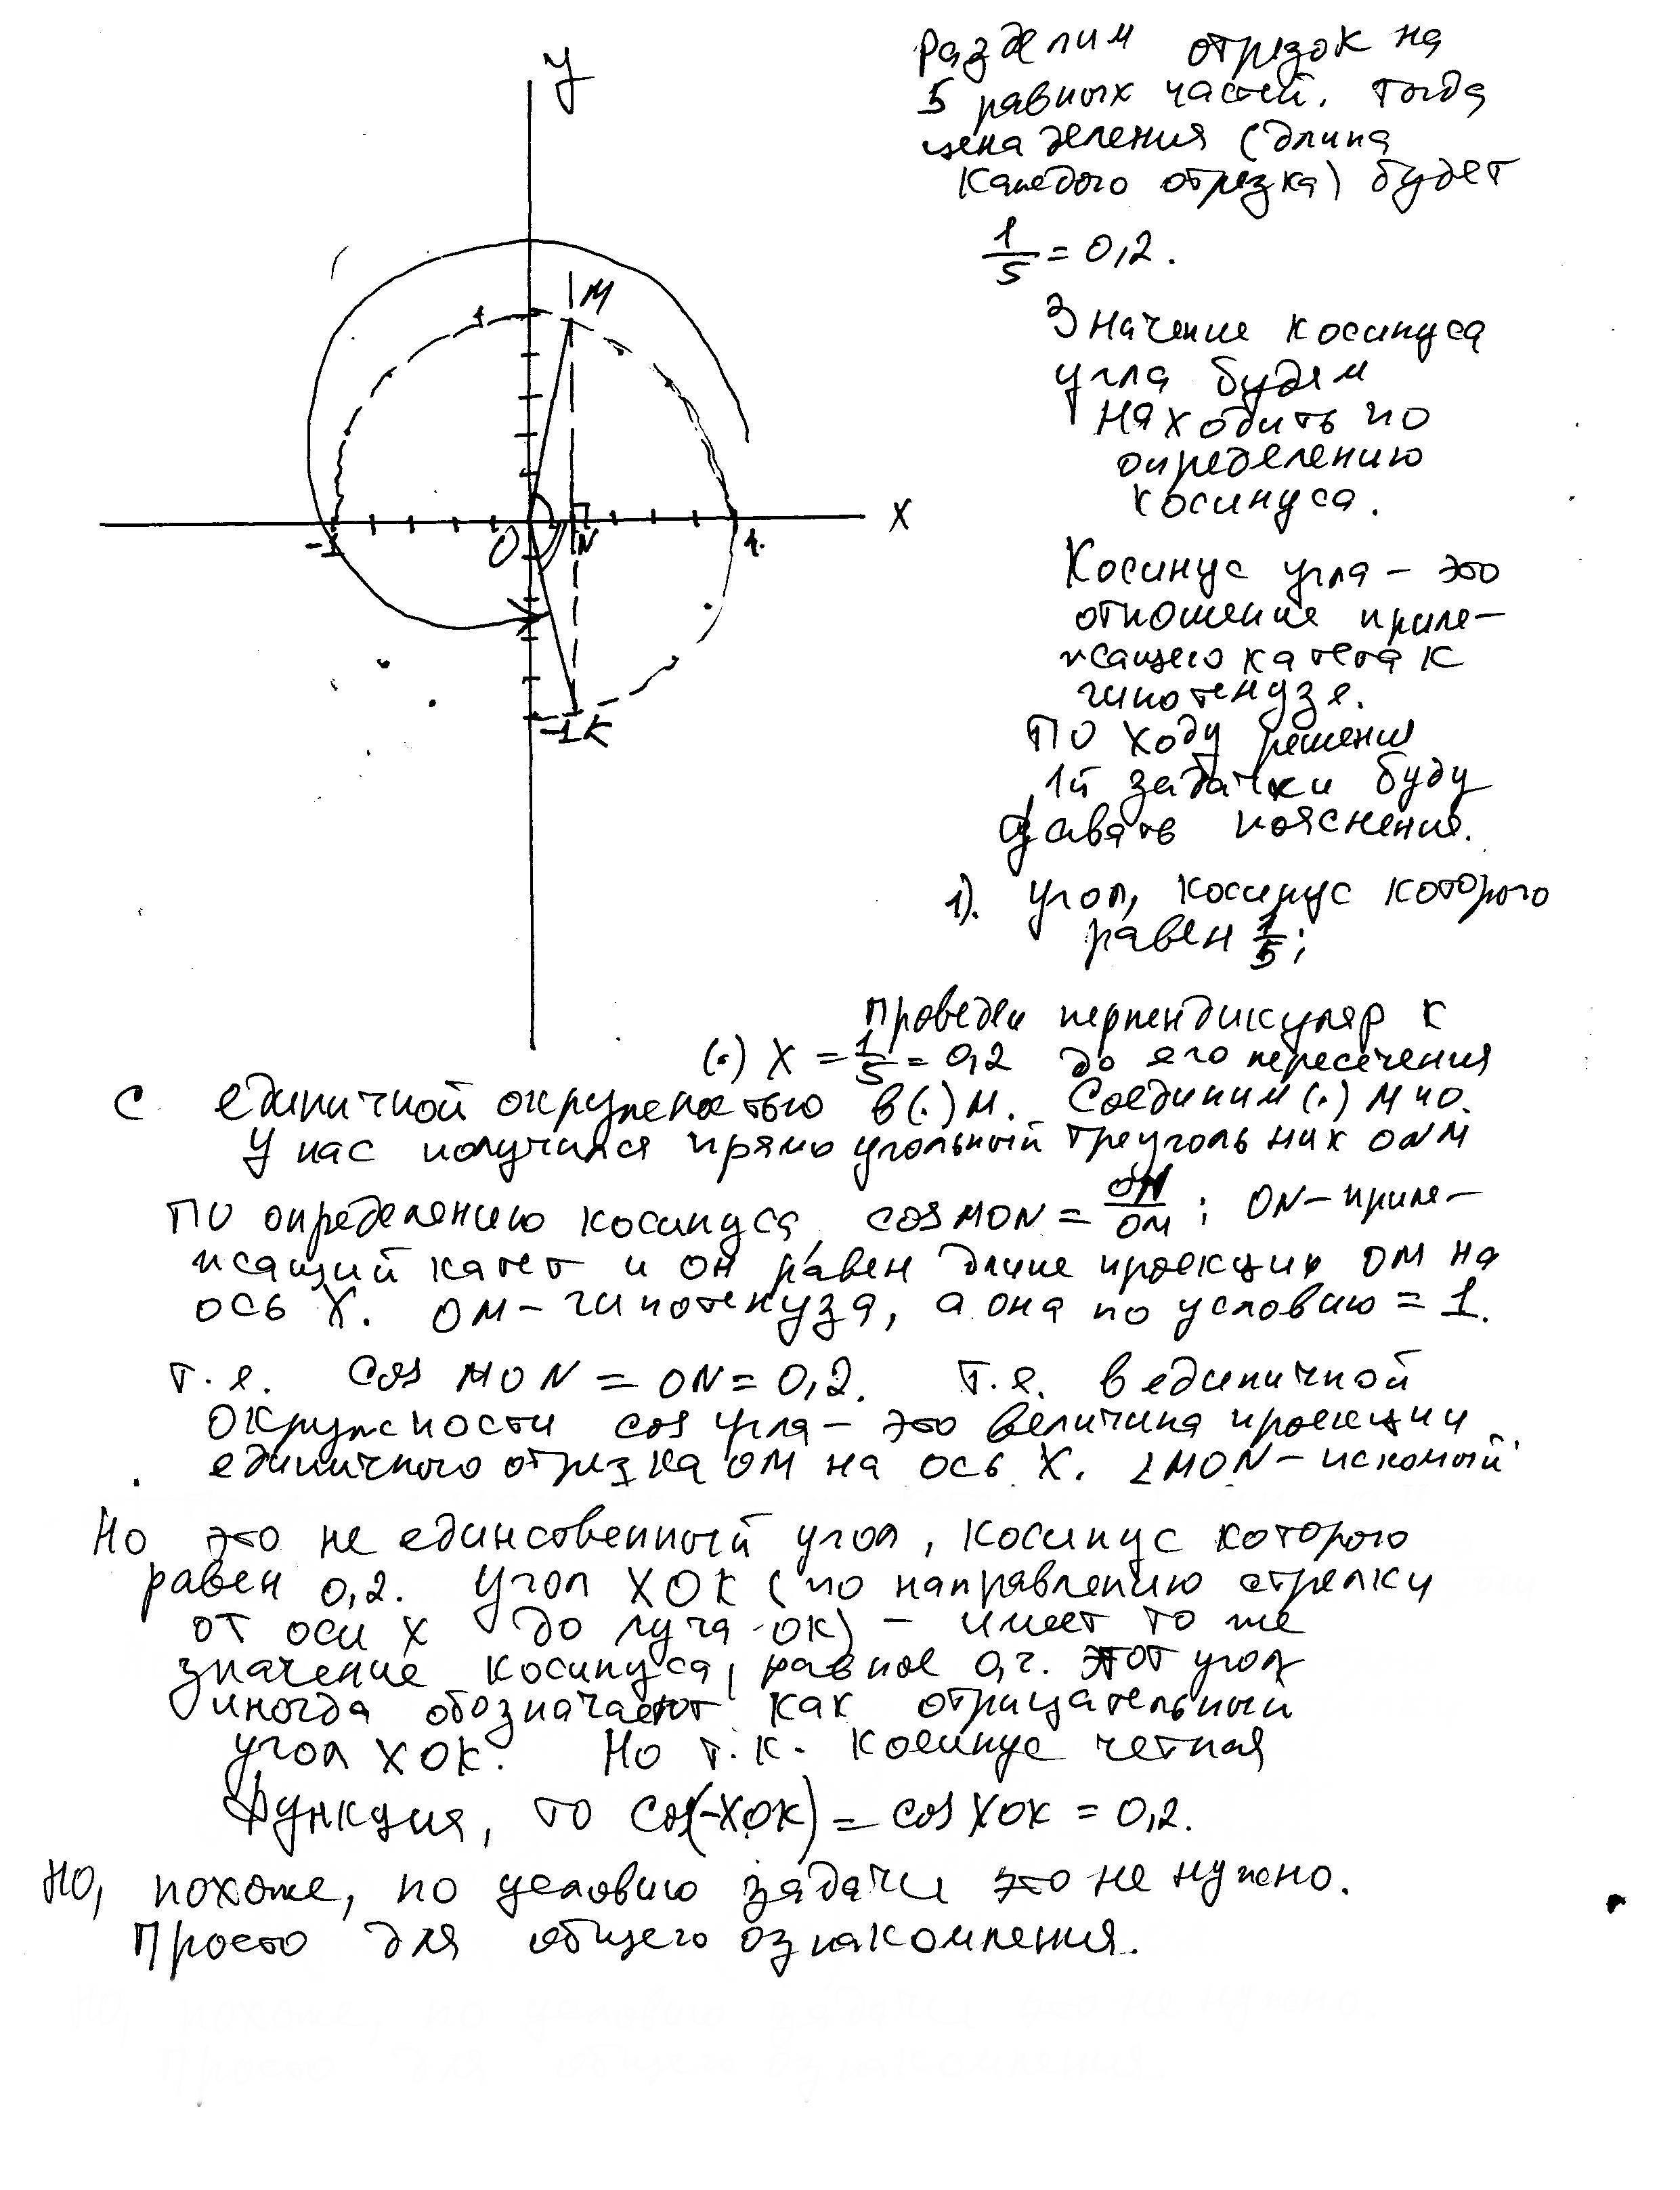 Разделим отрезок на
5 равных частей. Тогда
цена деления (длина
каждого отрезка) будет
1/5 = 0,2.
Значение косинуса
угла будем
находить по
определению
косинуса.
Косинус угла – это
отношение приле-
жащего катета к
гипотенузе.
По ходу решения
1й задачки буду
давать пояснения.
1). угол, косинус которого
равен 1/5;
Проведем перпендикуляр к
(·) X = 1/5 = 0,2 до его пересечения
с единичной окружностью в (·) M. Соединим (·) M и O.
У нас получился прямоугольный треугольник ONM
По определению косинуса cos MON = ON/OM; ON – приле-
жащий катет и он равен длине проекции OM на
ось X. OM – гипотенуза, а она по условию = 1.
т.е. cos MON = ON = 0,2. т.е. в единичной
окружности cos угла – это величина проекции
единичного отрезка OM на ось X. ∠MON – искомый
Но это не единсвенный угол, косинус которого
равен 0,2. Угол XOK (по направлению стрелки
от оси X до луча OK) – имеет то же
значение косинуса, равное 0,2. Этот угол
иногда обозначают как отрицательный
угол XOK. Но т.к. косинус четная
функция, то cos(-XOK) = cos XOK = 0,2.
Но, похоже, по условию задачи это не нужно.
Просто для общего ознакомления.
y
M
1
X
-1
O
N
1
-1
K